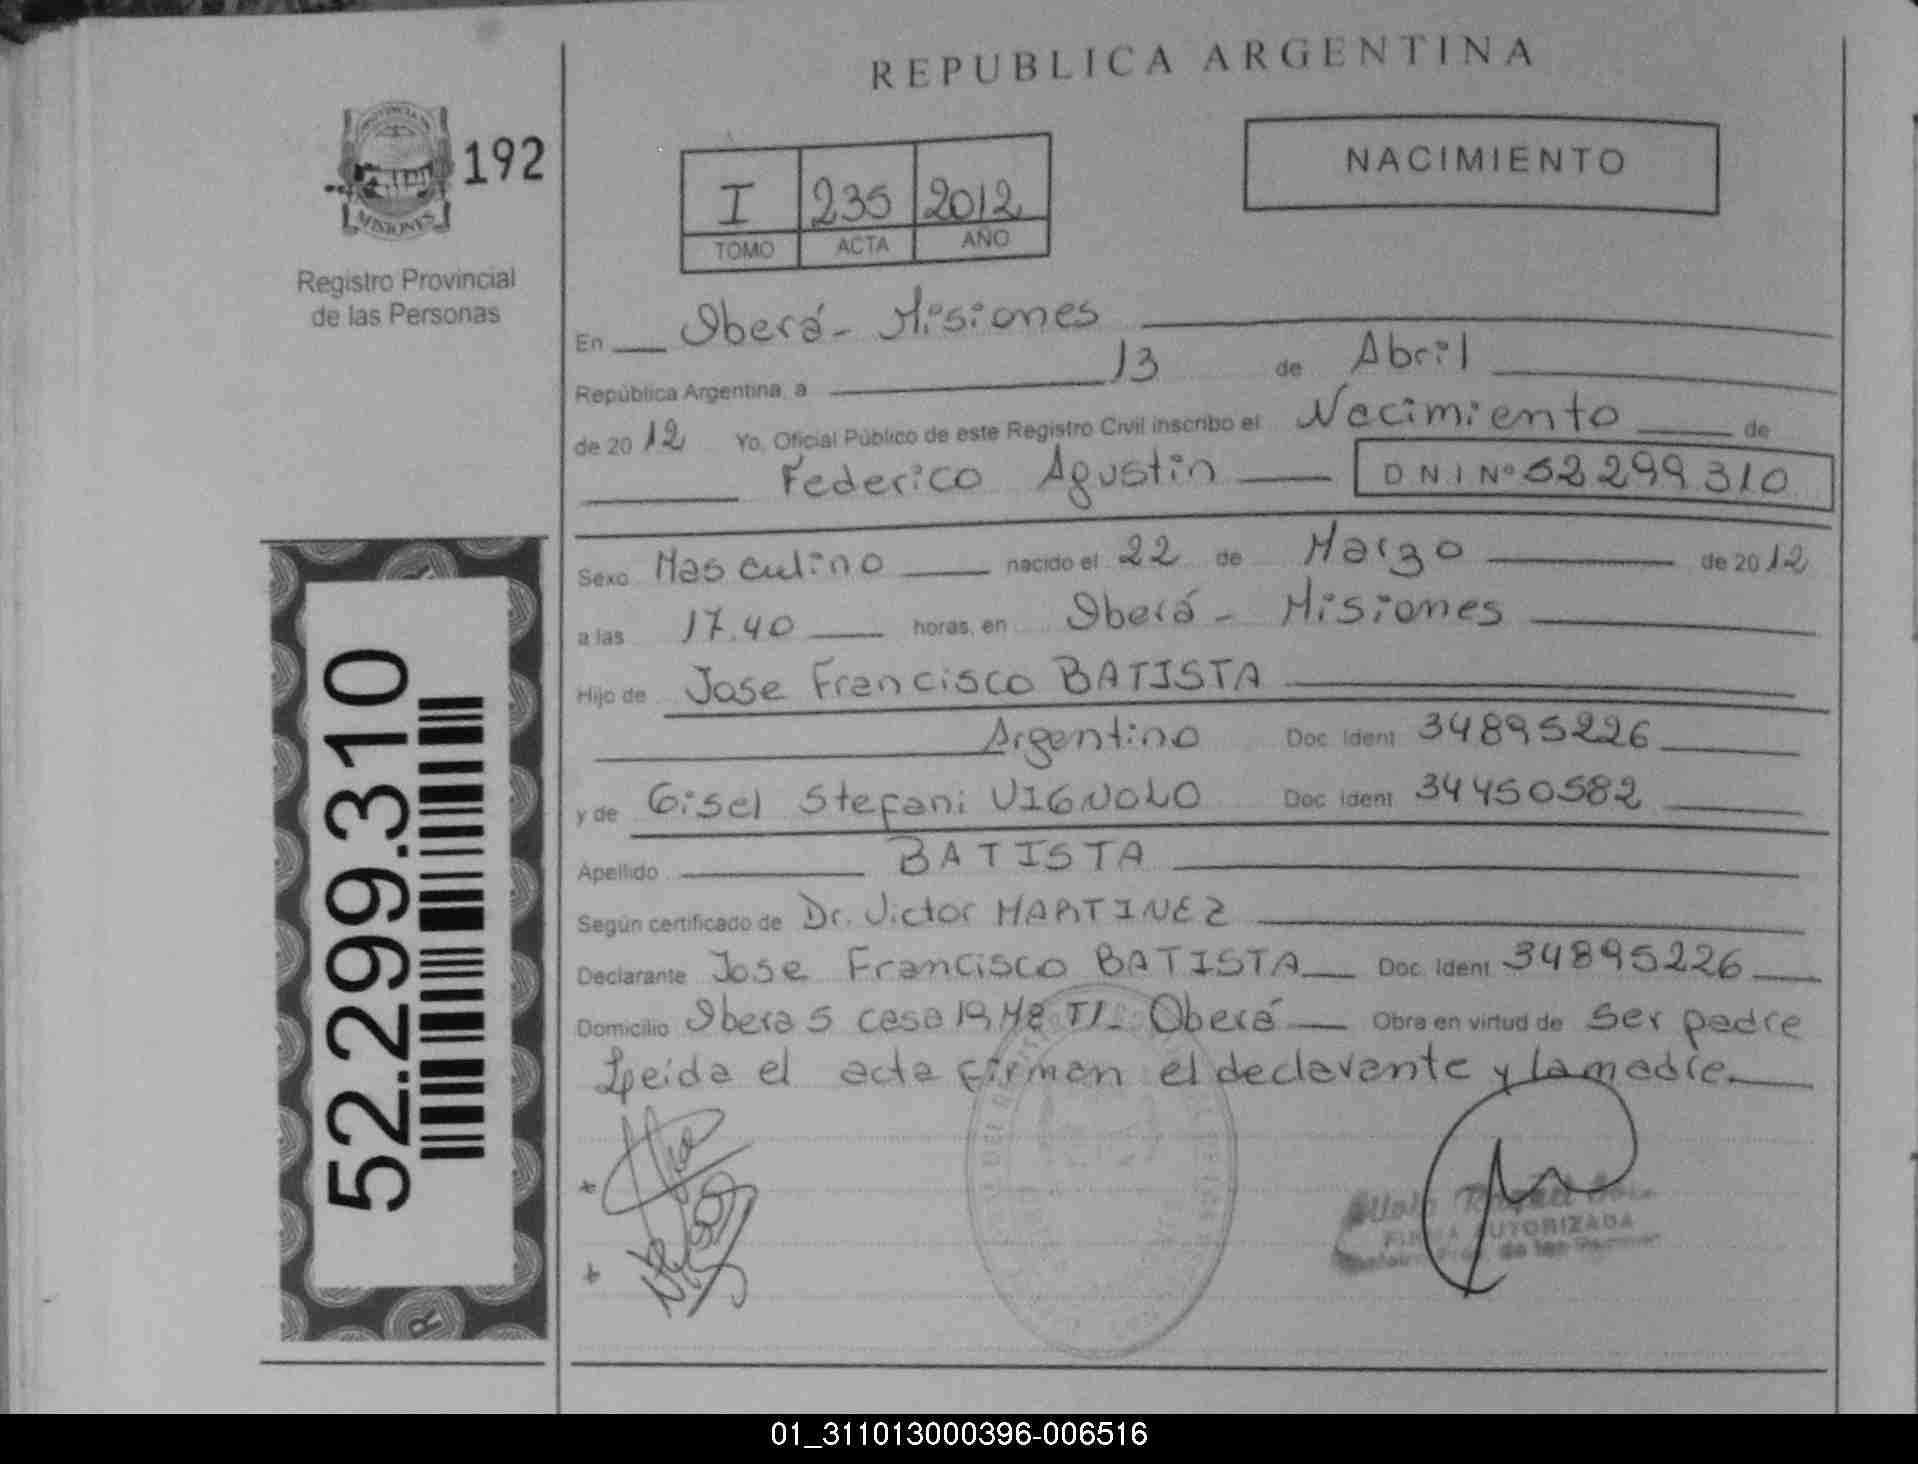 REPUBLICA ARGENTINA
NACIMIENTO
192
MISIONES
Registro Provincial
de las Personas
I 235 2012
TOMO ACTA AÑO
En Oberá - Misiones
República Argentina, a 13 de Abril
de 2012 Yo, Oficial Público de este Registro Civil inscribo el Nacimiento de
Federico Agustin DNI Nº 52299310
Sexo Masculino nacido el 22 de Marzo de 2012
a las 17.40 horas, en Oberá - Misiones
Hijo de Jose Francisco BATISTA
Argentino Doc. Ident 34895226
y de Gisel Stefani VIGNOLO Doc. Ident 34450582
Apellido BATISTA
Según certificado de Dr. Victor MARTINEZ
Declarante Jose Francisco BATISTA Doc. Ident 34895226
Domicilio Obera 5 casa 19 Oberá Obra en virtud de ser padre
Leida el acta firman el declarante y la madre.
52.299.310
AUTORIZADA
de las
01_311013000396-006516